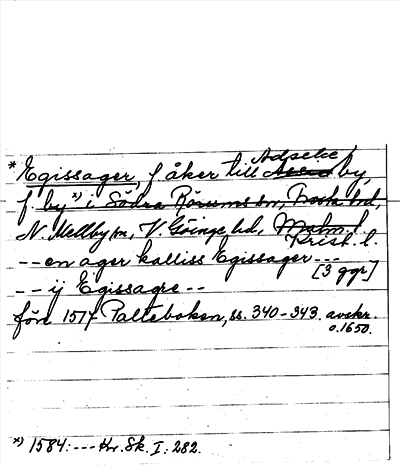 Adseke
* Egissager, f åker till Assen by,
f. by *) i Södra Rörums sn, Frosta hd,
N. Mellby sn, V. Göinge hd, Malm. l.
Krist. l.
-- en ager kalliss Egissager ---
[3 ggr]
-- ij Egissagre --
före 1514 Palteboken, ss. 340-343. avskr.
o. 1650.
*) 1584: --- Hr. Sk. I: 282.